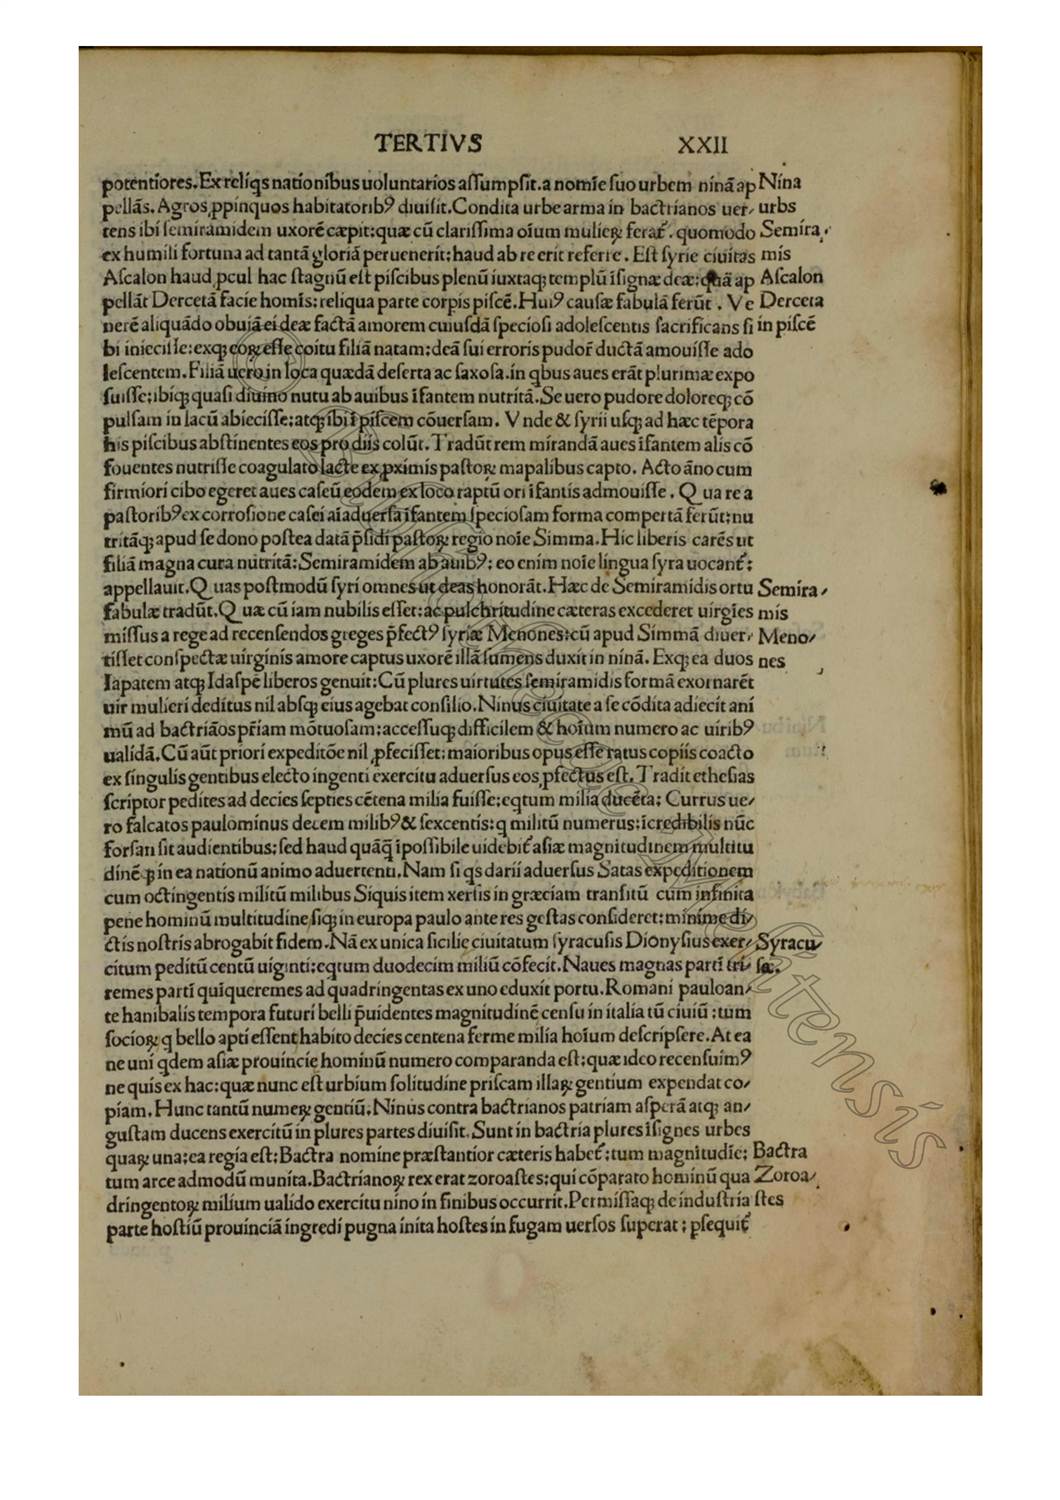 TERTIVS XXII
potentiores. Ex reliq̃s nationibus uoluntarios aſſumpſit. a nomīe ſuo urbem ninā ap Nina
pellās. Agros ꝓpinquos habitatorib⁹ diuiſit. Condita urbe arma in bactrianos uer⸗ urbs
tens ibi ſemiramidem uxorē cæpit: quæ cū clariſſima oīum mulieꝝ ferat̃. quomodo Semira⸗
ex humili fortuna ad tantā gloriā peruenerit: haud ab re erit referre. Eſt ſyrie ciuitas mis
Aſcalon haud ꝓcul hac ſtagnū eſt piſcibus plenū iuxtaqꝫ templū īſignæ deæ: quā ap Aſcalon
pellāt Dercetā facie homīs: reliqua parte corꝑis piſcē. Hui⁹ cauſæ fabulā ferūt. Ve Derceta
nerē aliquādo obuiā ei deæ factā amorem cuiuſdā ſpecioſi adoleſcentis ſacrificans ſi in piſcē
bi inieciſſe: exqꝫ eoꝝ eſſe coitu filiā natam: deā ſui erroris pudor̃ ductā amouiſſe ado
leſcentem. Filiā uero in loca quædā deſerta ac ſaxoſa. in qbus aues erāt plurimæ expo
ſuiſſe: ibiqꝫ quaſi diuino nutu ab auibus īfantem nutritā. Se uero pudore doloreqꝫ cō
pulſam in lacū abieciſſe: atqꝫ ibi ī piſcem cōuerſam. Vnde & ſyrii uſqꝫ ad hæc tēpora
his piſcibus abſtinentes eos pro diis colūt. Tradūt rem mirandā aues īfantem alis cō
fouentes nutriſſe coagulato lacte ex ꝓximis paſtoꝝ mapalibus capto. Acto āno cum
firmiori cibo egeret aues caſeū eodem ex loco raptū ori īfantis admouiſſe. Qua re a
paſtorib⁹ ex corroſione caſei aīaduerſa īfantem ſpecioſam forma compertā ferūt: nu
tritāqꝫ apud ſe dono poſtea datā p̃ſidi paſtoꝝ regio noīe Simma. Hic liberis carēs ut
filiā magna cura nutritā: Semiramidem ab auib⁹: eo enim noīe lingua ſyra uocant̃:
appellauit. Quas poſtmodū ſyri omnes ut deas honorāt. Hæc de Semiramidis ortu Semira⸗
fabulæ tradūt. Quæ cū iam nubilis eſſet: ac pulchritudine cæteras excederet uirgīes mis
miſſus a rege ad recenſendos greges p̃fect⁹ ſyriæ Menones: cū apud Simmā diuer⸗ Meno⸗
tiſſet conſpectæ uirginis amore captus uxorē illā ſumens duxit in ninā. Exqꝫ ea duos nes
Iapatem atqꝫ Idaſpē liberos genuit: Cū plures uirtutes ſemiramidis formā exornarēt
uir mulieri deditus nil abſqꝫ eius agebat conſilio. Ninus ciuitate a ſe cōdita adiecit ani
mū ad bactriāos p̃riam mōtuoſam: acceſſuqꝫ difficilem & hoīum numero ac uirib⁹
ualidā. Cū aūt priori expeditōe nil ꝓfeciſſet: maioribus opus eſſe ratus copiis coacto
ex ſingulis gentibus electo ingenti exercitu aduerſus eos ꝓfectus eſt. Tradit etheſias
ſcriptor pedites ad decies ſepties cētena milia fuiſſe: eqtum milia ducēta: Currus ue⸗
ro falcatos paulominus decem milib⁹ & ſexcentis: q militū numerus: īcredibilis nūc
forſan ſit audientibus: ſed haud quāq̃ īpoſſibile uidebit̃ aſiæ magnitudinem multitu
dinēqꝫ in ea nationū animo aduertenti. Nam ſi qs darii aduerſus Satas expeditionem
cum octingentis militū milibus Siquis item xerſis in græciam tranſitū cum infinita
pene hominū multitudine ſiqꝫ in europa paulo ante res geſtas conſideret: minime di⸗
ctis noſtris abrogabit fidem. Nā ex unica ſicilie ciuitatum ſyracuſis Dionyſius exer⸗ Syracu⸗
citum peditū centū uiginti: eqtum duodecim miliū cōfecit. Naues magnas partī tri⸗ ſæ.
remes partī quīqueremes ad quadringentas ex uno eduxit portu. Romani pauloan⸗
te hanibalis tempora futuri belli p̃uidentes magnitudinē cenſu in italia tū ciuiū: tum
ſocioꝝ q bello apti eſſent habito decies centena ferme milia hoīum deſcripſere. At ea
ne uni qdem aſiæ prouincie hominū numero comparanda eſt: quæ ideo recenſuim⁹
ne quis ex hac: quæ nunc eſt urbium ſolitudine priſcam illaꝝ gentium expendat co⸗
piam. Hunc tantū numeꝝ gentiū. Ninus contra bactrianos patriam aſperā atqꝫ an⸗
guſtam ducens exercitū in plures partes diuiſit. Sunt in bactria plures īſignes urbes
quaꝝ una: ea regia eſt: Bactra nomine præſtantior cæteris habet̃: tum magnitudīe; Bactra
tum arce admodū munita. Bactrianoꝝ rex erat zoroaſtes: qui cōparato hominū qua Zoroa⸗
dringentoꝝ milium ualido exercitu nino in finibus occurrit. Permiſſaqꝫ de induſtria ſtes
parte hoſtiū prouinciā ingredi pugna inita hoſtes in fugam uerſos ſuperat: ꝑſequit̃